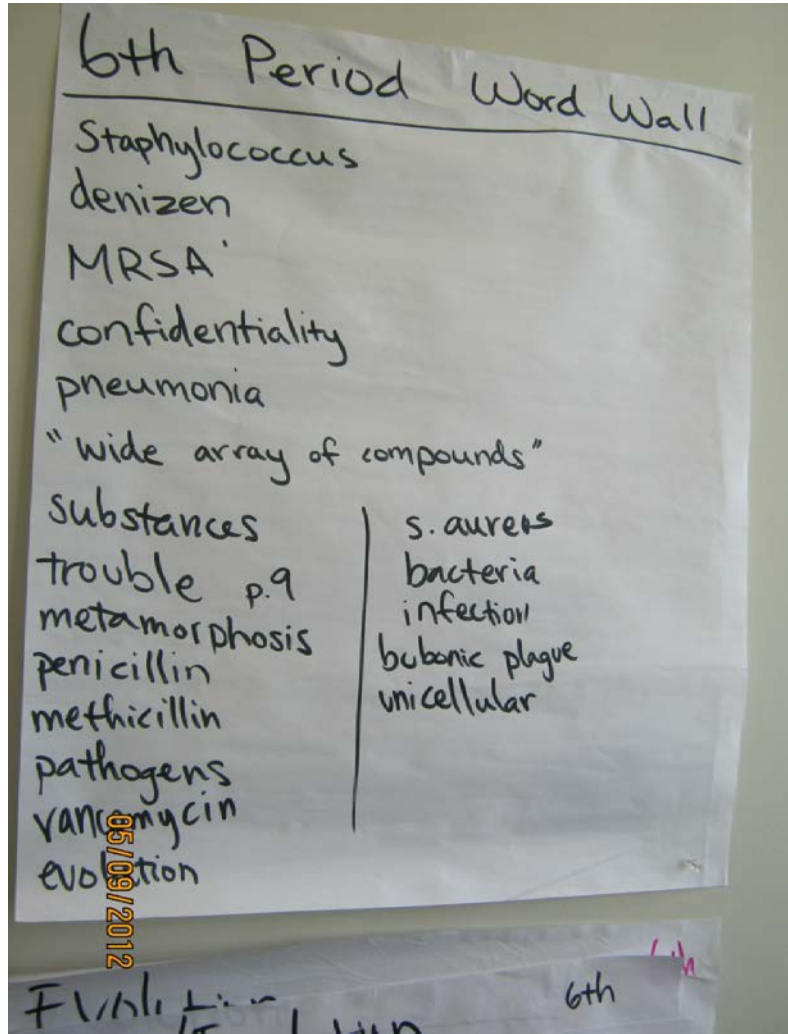 6th Period Word Wall
Staphylococcus
denizen
MRSA
confidentiality
pneumonia
"wide array of compounds"
substances
trouble p.9
metamorphosis
penicillin
methicillin
pathogens
vancomycin
evolution
s. aureus
bacteria
infection
bubonic plague
unicellular
05/09/2012
6th
Evolution
6th